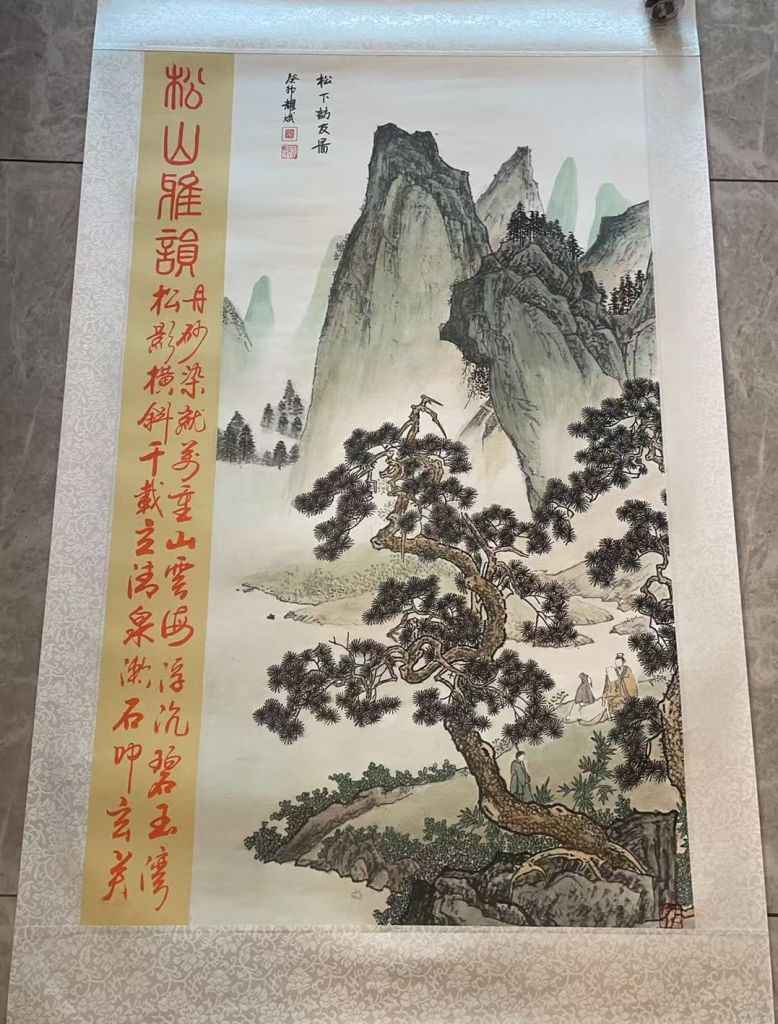 松下訪友圖
癸卯耀斌
松山雅韻
丹砂染就萬重山雲海浮沉碧玉灣
松影橫斜千載立清泉漱石叩玄关